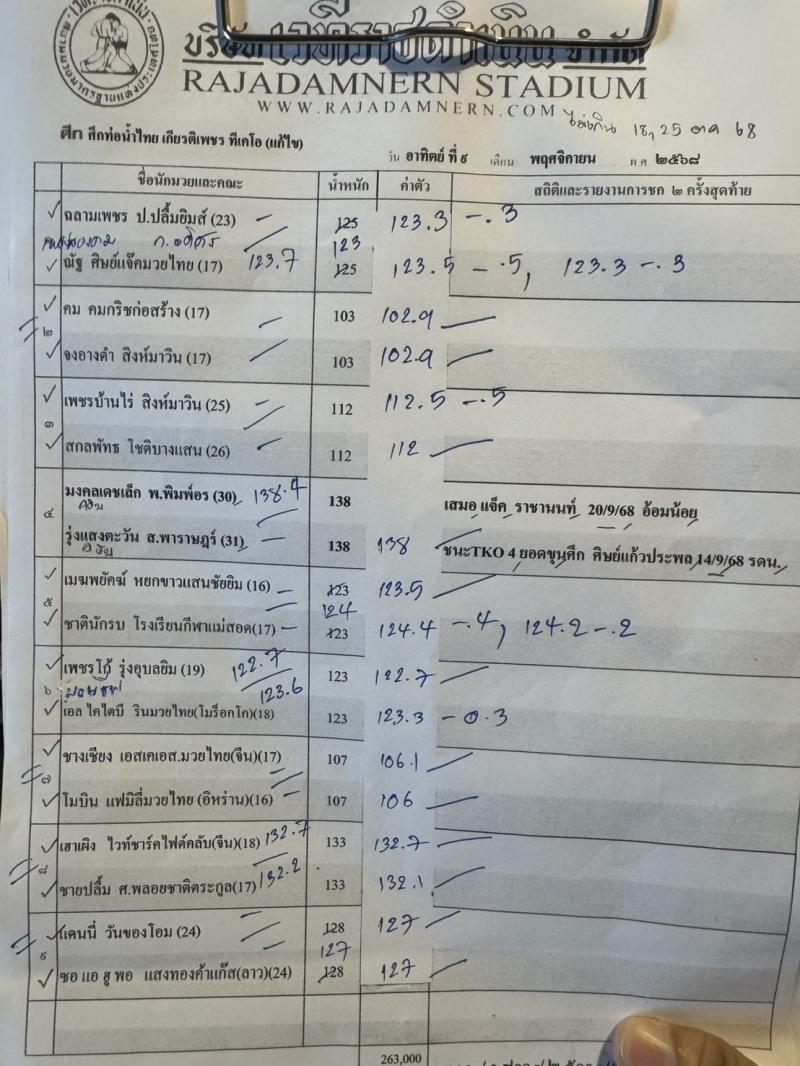 บริษัท เวทีราชดำเนิน จำกัด
RAJADAMNERN STADIUM
WWW.RAJADAMNERN.COM
18, 25 ตค 68
ศึก ศึกท่อน้ำไทย เกียรติเพชร ทีเคโอ (แก้ไข)
วัน อาทิตย์ ที่ ๙ เดือน พฤศจิกายน พ.ศ ๒๕๖๘
ชื่อนักมวยและคณะ น้ำหนัก ค่าตัว สถิติและรายงานการชก ๒ ครั้งสุดท้าย
ฉลามเพชร ป.ปลื้มยิมส์ (23) 125 123.3 -.3
123
ณัฐ ศิษย์แจ๊คมวยไทย (17) 123.7 125 123.5 -.5, 123.3 -.3
คม คมกริชก่อสร้าง (17) 103 102.9
๒
จงอางดำ สิงห์มาวิน (17) 103 102.9
เพชรบ้านไร่ สิงห์มาวิน (25) 112 112.5 -.5
๓
สกลพัทธ โชติบางแสน (26) 112 112
มงคลเดชเล็ก พ.พิมพ์อร (30) 138.4 138 เสมอ แจ็ค ราชานนท์ 20/9/68 อ้อมน้อย
๔
รุ่งแสงตะวัน ส.พาราษฎร์ (31) 138 138 ชนะTKO 4 ยอดขุนศึก ศิษย์แก้วประพล 14/9/68 รดน.
เมฆพยัคฆ์ หยกขาวแสนชัยยิม (16) 123 123.5
๕ 124
ชาตินักรบ โรงเรียนกีฬาแม่สอด(17) 123 124.4 -.4, 124.2 -.2
เพชรโก้ รุ่งอุบลยิม (19) 122.7 123 122.7
๖ 123.6
เอล ไคไตบี รินมวยไทย(โมร็อกโก)(18) 123 123.3 - 0.3
ชางเชียง เอสเคเอส.มวยไทย(จีน)(17) 107 106.1
๗
โมบิน แฟมิลี่มวยไทย (อิหร่าน)(16) 107 106
เฮาเผิง ไวท์ชาร์คไฟต์คลับ(จีน)(18) 132.7 133 132.7
๘
ชายปลื้ม ศ.พลอยชาติตระกูล(17) 132.2 133 132.1
แดนนี่ วันของโอม (24) 128 127
๙ 127
ซอ แอ ฮู พอ แสงทองค้าแก๊ส(ลาว)(24) 128 127
263,000